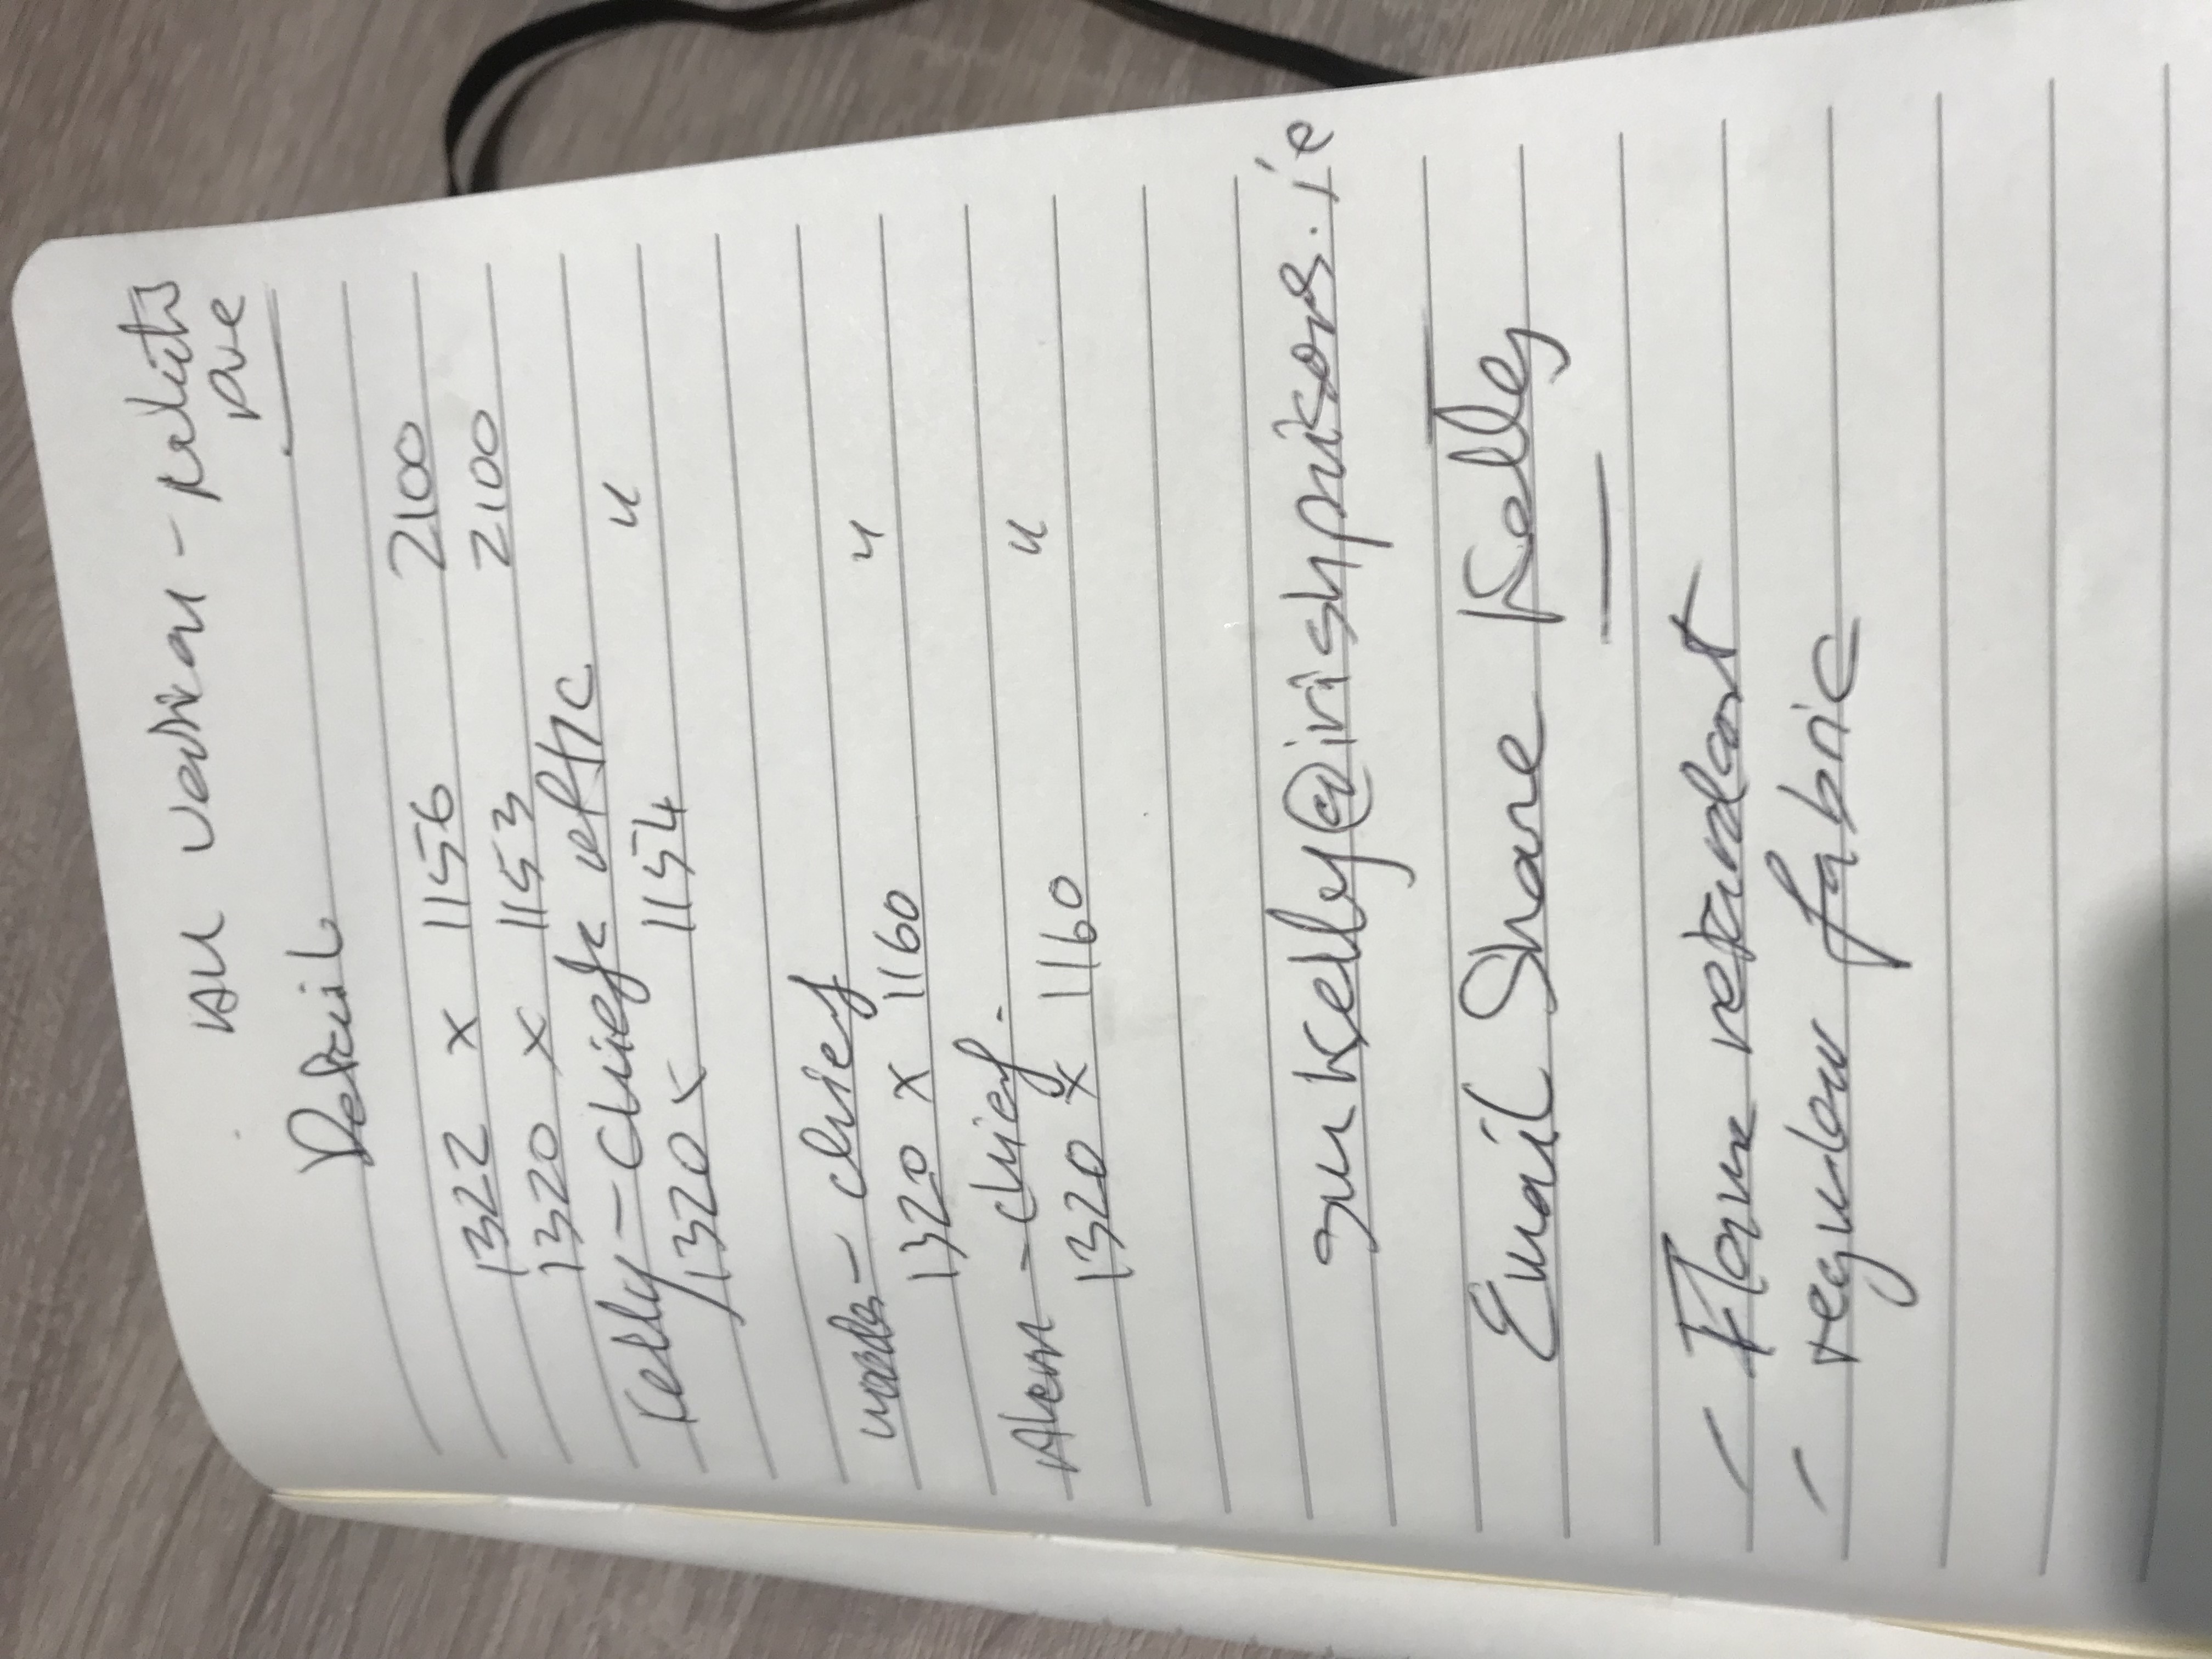 All venetian - white
PVC
Detail
1322 x 1156 2100
1320 x 1153 2100
Kelly - Chiefs office
1320 x 1154 "
- chief
1320 x 1160 "
- chief.
1320 x 1160 "
@irishprisons.ie
Email Shane Kelly
- Flame retardant
- regular fabric